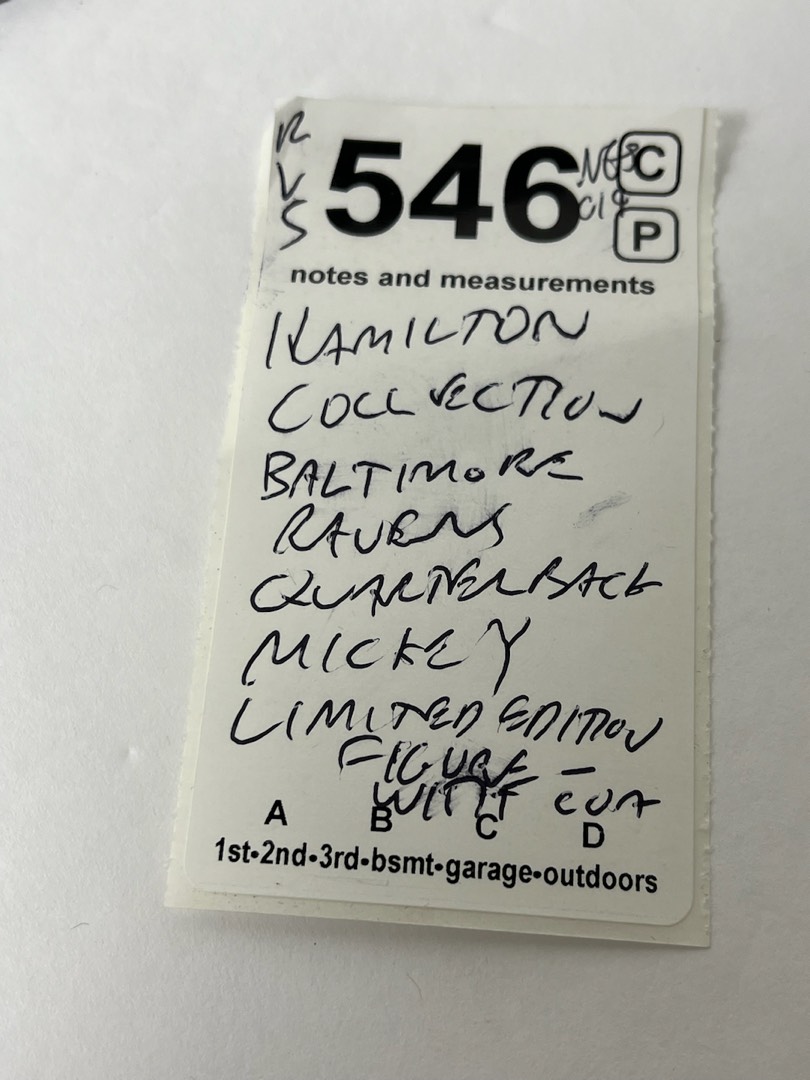 RVS
546
C
P
notes and measurements
HAMILTON
COLLECTION
BALTIMORE
RAVENS
QUARTERBACK
MICKEY
LIMITED EDITION
FIGURE –
WITH COA
A B C D
1st•2nd•3rd•bsmt•garage•outdoors